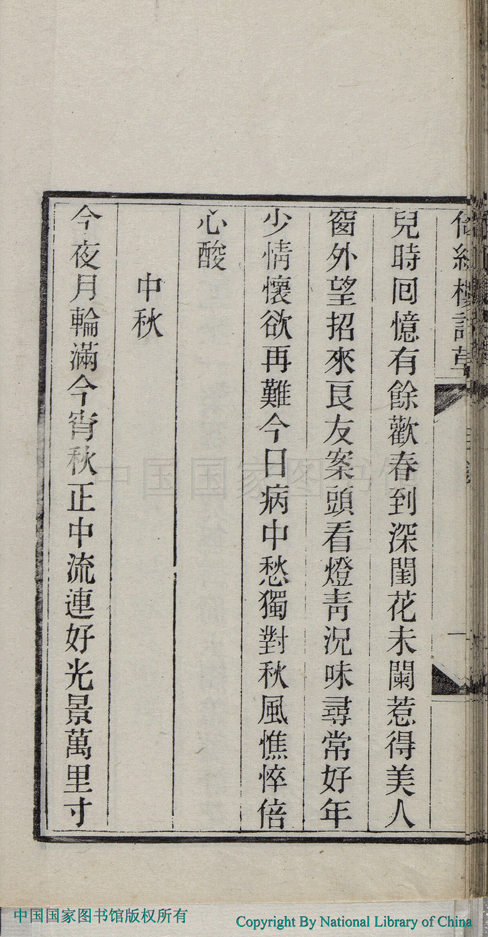 兒時回憶有餘歡春到深閨花未闌惹得美人
窗外望招來良友案頭看燈青況味尋常好年
少情懷欲再難今日病中愁獨對秋風憔悴倍
心酸
中秋
今夜月輪滿今宵秋正中流連好光景萬里寸
中国国家图书馆
中国国家图书馆版权所有
Copyright By National Library of China